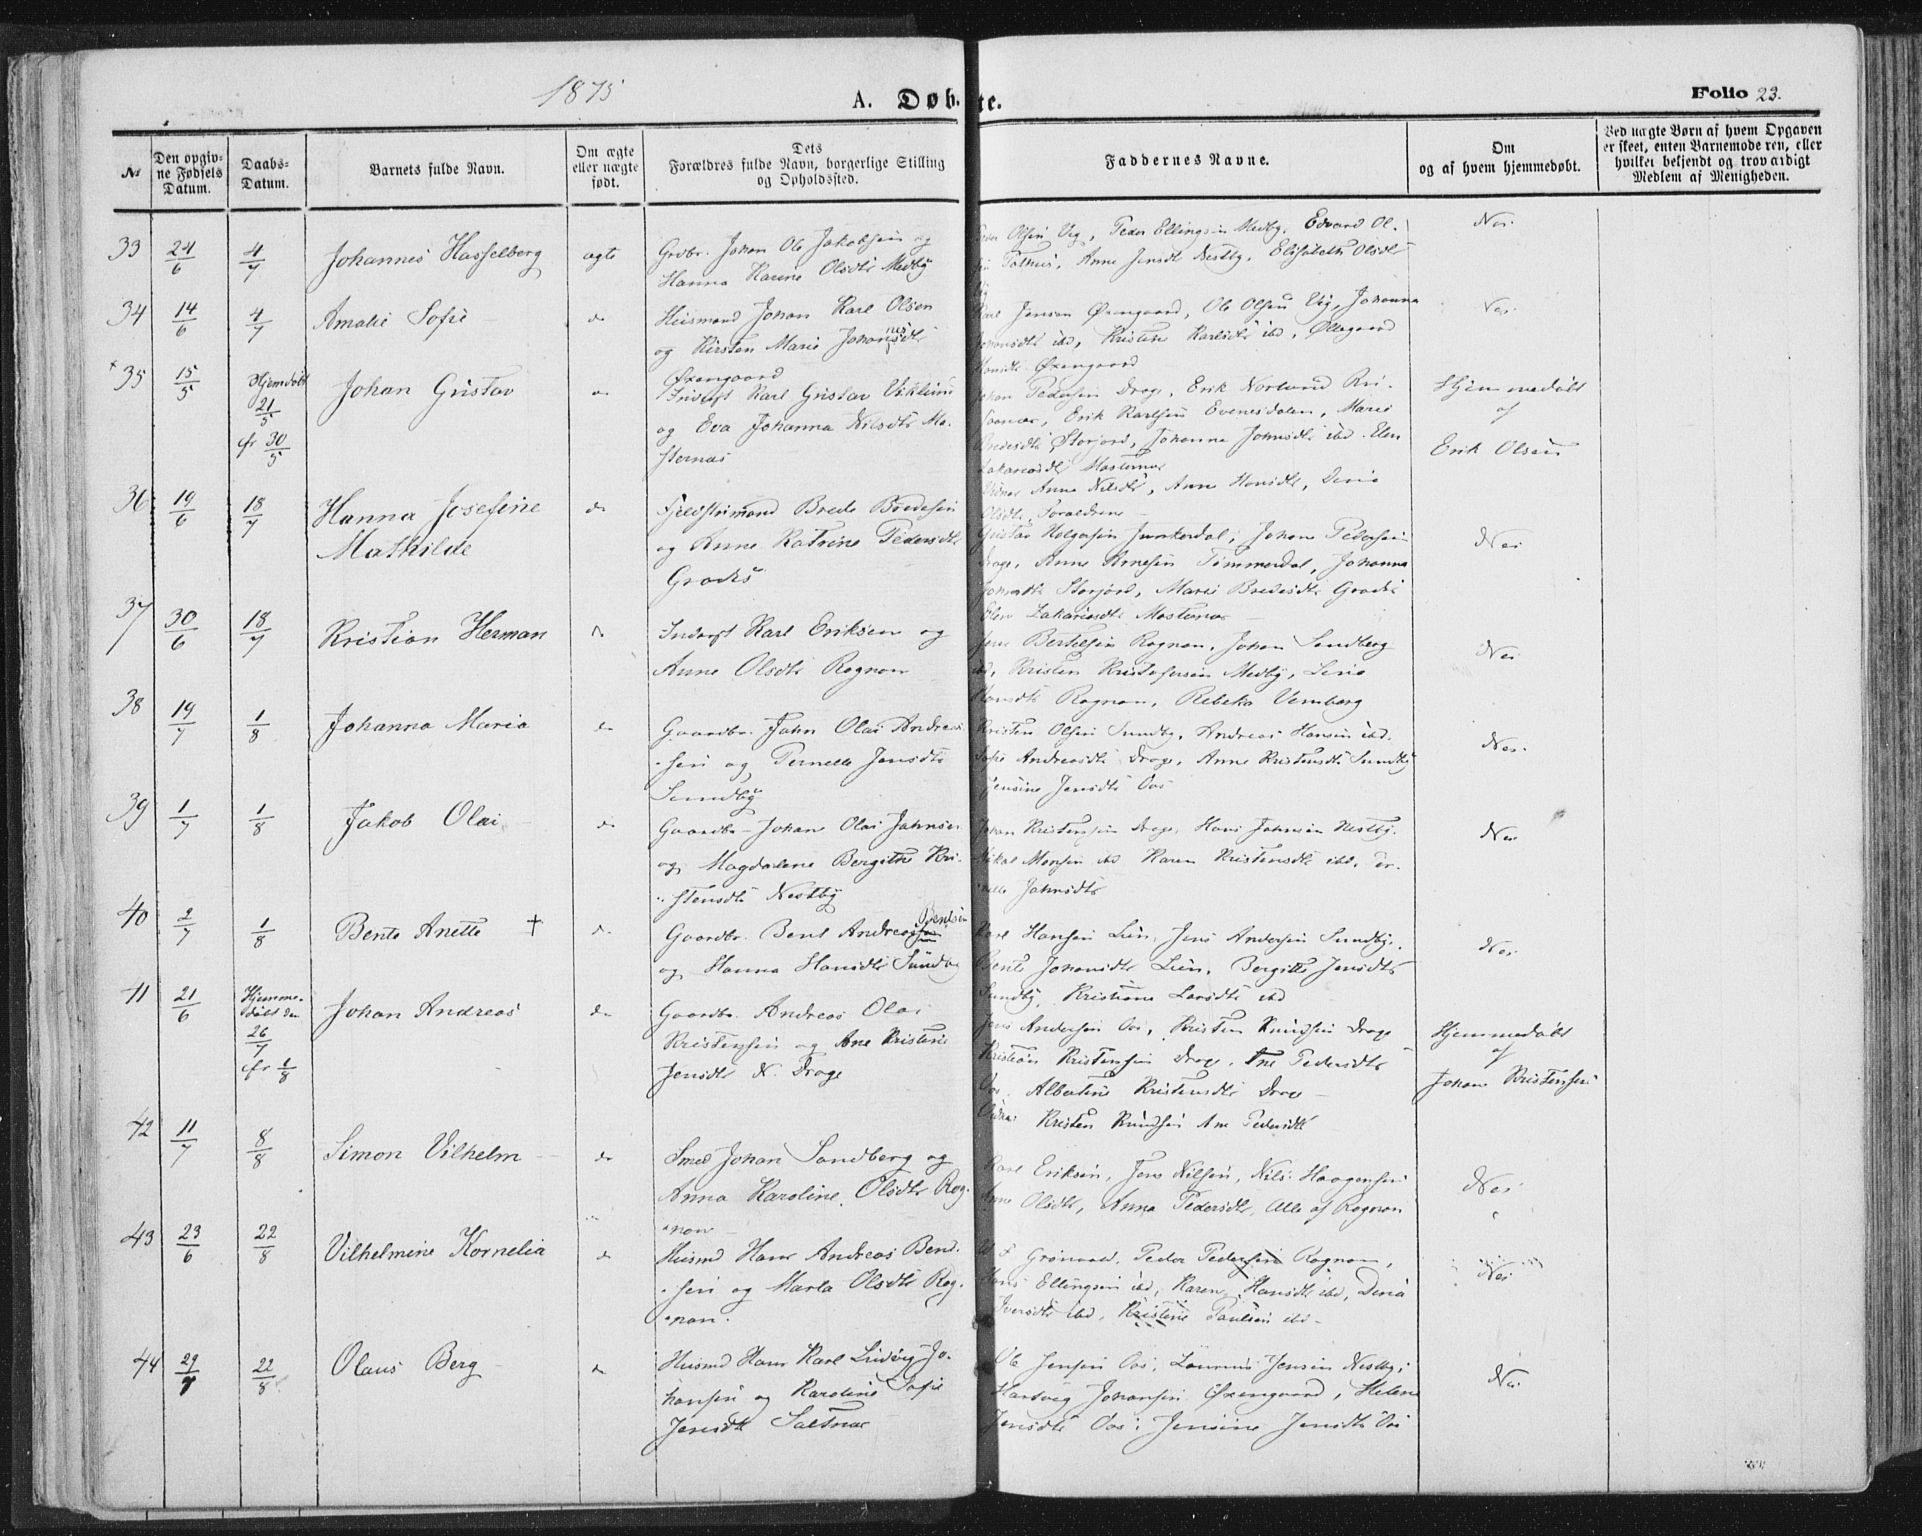 1875
A. Døbte.
Folio 23.
№
Den opgivne Fødsels Datum.
Daabs-Datum.
Barnets fulde Navn.
Om ægte eller uægte født.
Dets Forældres fulde Navn, borgerlige Stilling og Opholdssted.
Faddernes Navne.
Om og af hvem hjemmedøbt.
Ved uægte Børn af hvem Opgaven er skeet, enten Barnemoderen, eller hvilket bekjendt og troværdigt Medlem af Menigheden.
33 24/6 4/7 Johannes Hasselberg ægte
Grdbr. Johan Ole Jakobsen og
Hanna Karine Olsdtr Medby
Peder Olsen Vig, Peder Ellingsen Medby, Edvard Ol-
sen Anne Jensdtr Nestby, Elisabeth Olsdtr
Vig
Nei
34 14/6 4/7 Amalie Sofie do
Huismand Johan Karl Olsen
og Kirsten Marie Johannesdtr
Øxengaard
Karl Jensen Øxengaard, Ole Olsen Vig, Johanna
Johansdtr ibd, Kristine Karlsdtr ibd, Øllegaard
Hansdtr Øxengaard
Nei
35 15/5 Hjemdøbt 21/5 fr 30/5 Johan Gustav do
Karl Gustav Viklund
og Eva Johanna Nilsdtr Mo-
sternæs
Johan Pedersen Drage, Erik Norlund
Erik Karlsen Evenesdalen, Marie
Bredesdtr Storjord, Johanna Johnsdtr ibd. Elen
Zakariasdtr Mosternæs
Hjemmedøbt
af
Erik Olsen
36 19/6 18/7 Hanna Josefine
Mathilde do
Fjeldstuemand Brede Bredesen
og Anne Katrine Pedersdtr
Graddis
Anne Nilsdtr, Anne Hansdtr,
Olsdtr, Forældrene
Gustav Holgersen Junkerdal, Johan Pedersen
Drage, Anne Arnesen Tømmerdal, Johanna
Johnsdtr Storjord, Marie Bredesdtr Graddis
Elen Zakariasdtr Mosternæs
Nei
37 30/6 18/7 Kristian Herman do
Inderst Karl Eriksen og
Anne Olsdtr Rognan
Jens Bertelsen Rognan, Johan Sandberg
ibd, Kristen Kristofersen Medby,
Hansdtr Rognan, Rebeka Vernberg
Nei
38 19/7 1/8 Johanna Maria do
Gaardbr. John Olai Andreas-
sen og Pernelle Jensdtr
Sundby
Kristen Olsen Sundby, Andreas Hansen ibd.
Sofie Andreasdtr Drage, Anne Kristensdtr Sundby
Jensine Jensdtr Oos
Nei
39 1/7 1/8 Jakob Olai do
Gaardbr. Johan Olai Johnsen
og Magdalene Bergitte Kri-
stensdtr Nestby
Johan Kristensen Drage, Hans Johnsen Nestby,
Nikol Monsen ibd Karen Kristensdtr ibd, Per-
nelle Johnsdtr
Nei
40 2/7 1/8 Bente Anette † do
Gaardbr. Bent Andreas Bentsen
og Hanna Hansdtr Sundby
Karl Hansen Lien, Jens Andersen Sundby,
Bente Johansdtr Lien, Bergitte Jensdtr
Sundby, Kristiane Larsdtr ibd
Nei
41 21/6 Hjemmedøbt den 26/7 fr 1/8 Johan Andreas do
Gaardbr. Andreas Olai
Kristensen og Ane Kristine
Jensdtr N. Drage
Jens Andersen Oos, Kristen Knudsen Drage
Kristian Kristensen Drage, Ane Pedersdtr
Oos, Albertine Kristensdtr Drage
Kristen Knudsen Ane Pedersdtr
Hjemmedøbt
af
Johan Kristensen
42 11/7 8/8 Simon Vilhelm do
Smed Johan Sandberg og
Anna Karoline Olsdtr Rog-
nan
Karl Eriksen, Jens Nilsen, Nils Haagensen
Anne Olsdtr, Anna Pedersdtr, Alle af Rognan
Nei
43 23/6 22/8 Vilhelmine Kornelia do
Husmd Hans Andreas Bend-
sen og Marta Olsdtr Rog-
nan.
Grönvold, Peder Pedersen Rognan,
Hans Ellingsen ibd, Karen Hansdtr ibd,
Iversdtr ibd, Kristine Paulsen ibd
Nei
44 29/7 22/8 Olaus Berg do
Husmd Hans Karl Ludvig Jo-
hansen og Karoline Sofie
Jensdtr Saltnæs
Ole Jensen Oos, Laurits Jensen Nestby,
Hartvig Johansen Øxengaard, Helene
Jensdtr Oos, Jensine Jensdtr Oos
Nei